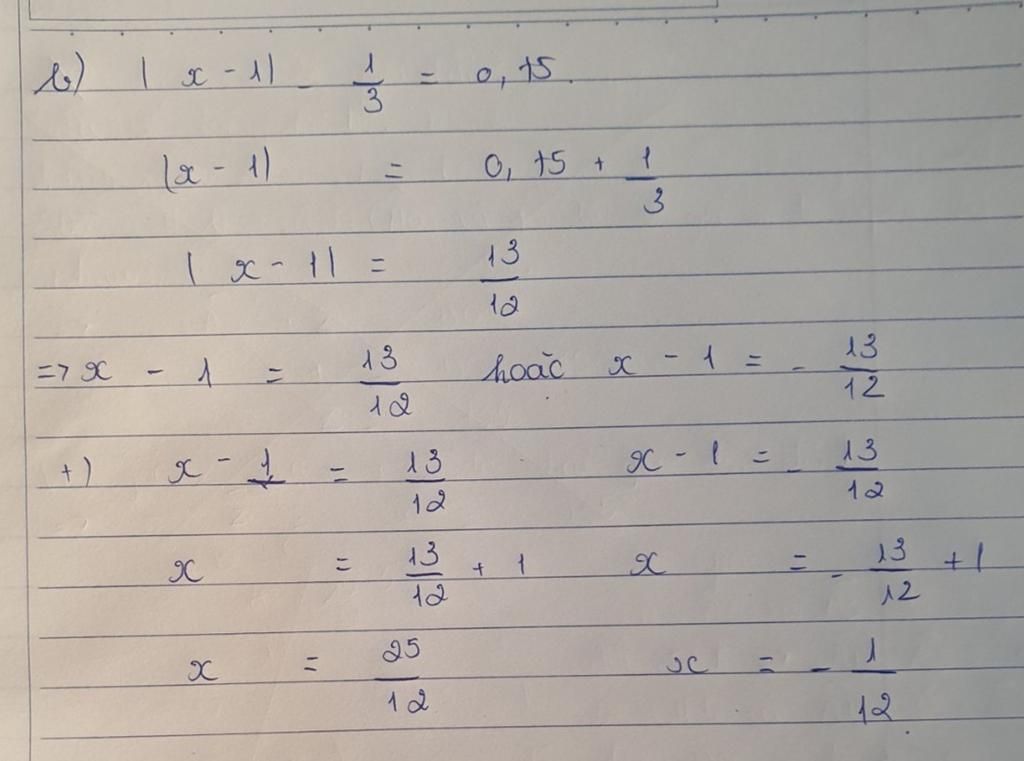 b) | x - 1| - 1/3 = 0,75.
|x - 1| = 0,75 + 1/3
| x - 1| = 13/12
=> x - 1 = 13/12 hoặc x - 1 = - 13/12
+) x - 1 = 13/12 x - 1 = - 13/12
x = 13/12 + 1 x = - 13/12 + 1
x = 25/12 x = - 1/12